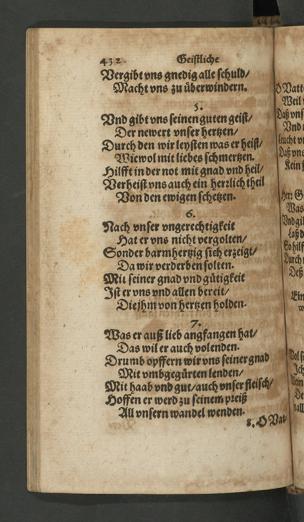 432 Geistliche
Vergibt vns gnedig alle schuld/
Macht vns zu überwindern.
5.
Vnd gibt vns seinen guten geist/
Der newert vnser hertzen/
Durch den wir leysten was er heist/
Wiewol mit liebes schmertzen.
Hilfft in der not mit gnad vnd heil/
Verheist vns auch ein herzlich theil
Von den ewigen schetzen.
6.
Nach vnser vngerechtigkeit
Hat er vns nicht vergolten/
Sonder barmhertzig sich erzeigt/
Da wir verderben solten.
Mit seiner gnad vnd gütigkeit
Ist er vns vnd allen bereit/
Die jhm von hertzen holden.
7.
Was er auß lieb angfangen hat/
Das wil er auch volenden.
Drumb opffern wir vns seiner gnad
Mit vmbgegürten lenden/
Mit haab vnd gut/auch vnser fleisch/
Hoffen er werd zu seinem preiß
All vnsern wandel wenden.
8. O Vat-